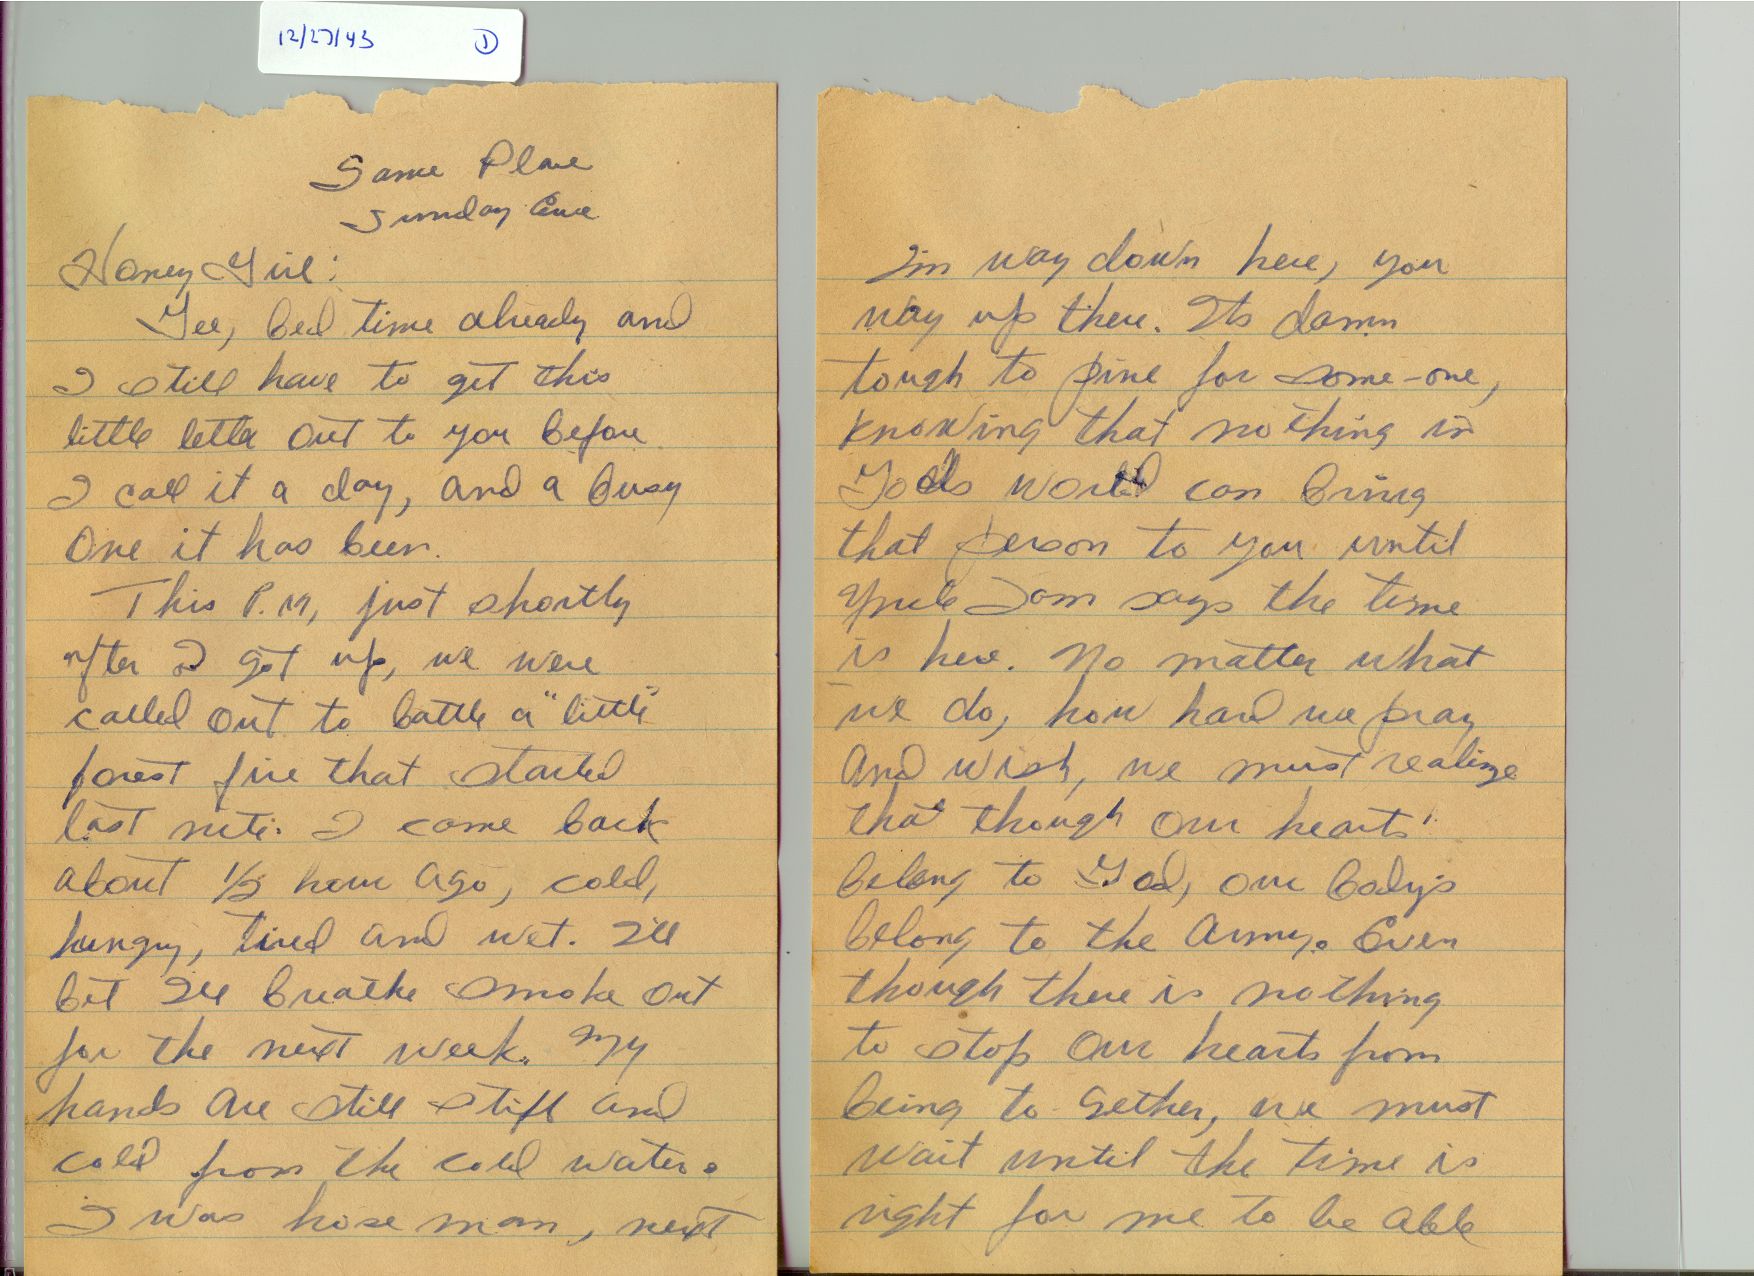 12/27/43 1
Same Place
Sunday Eve
Honey Girl:
Gee, bed time already and
I still have to get this
little letter out to you before
I call it a day, and a busy
one it has been.
This P.M, just shortly
after I got up, we were
called out to battle a "little"
forest fire that started
last nite. I came back
about 1/2 hour ago, cold,
hungry, tired and wet. I'll
bet I'll breathe smoke out
for the next week. My
hands are still stiff and
cold from the cold water.
I was hose man, next
I'm way down here, you
way up there. Its damn
tough to pine for some-one,
knowing that nothing in
Gods world can bring
that person to you until
Uncle Sam says the time
is here. No matter what
we do, how hard we pray
and wish, we must realize
that though our hearts'
belong to God, our body's
belong to the Army. Even
though there is nothing
to stop our hearts from
being to-gether, we must
wait until the time is
right for me to be able